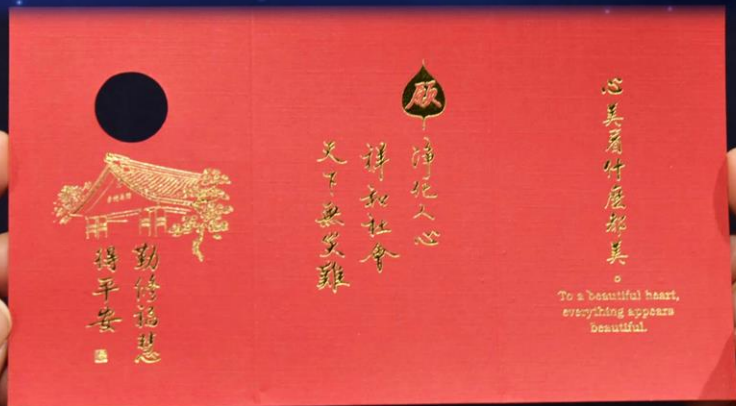 心美看什麼都美。
To a beautiful heart,
everything appears
beautiful.
願
淨化人心
祥和社會
天下無災難
勤修福慧
得平安